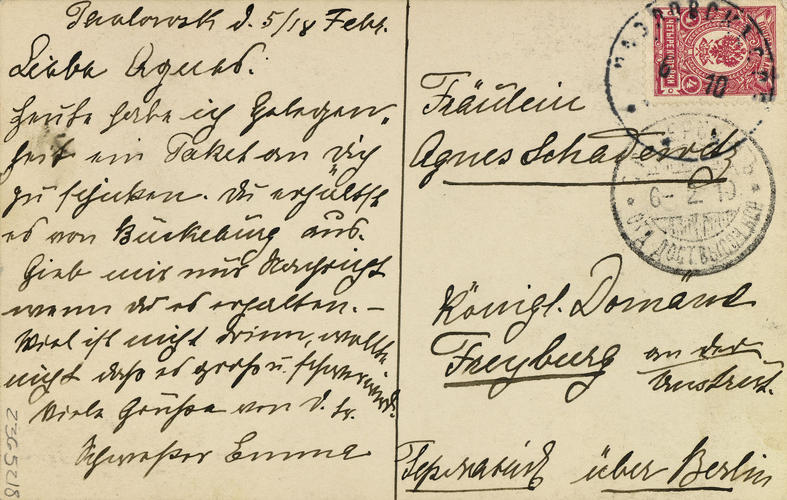 Pawlowsk d. 5/18 Febr.
Liebe Agnes.
Heute habe ich Gelegen„
heit ein Paket an Dich
zu schicken. Du erhältst
es von Bückeburg aus.
Gieb mir nur Nachricht
wenn du es erhalten. –
Viel ist nicht drinn, wollte
nicht daß es groß u. schwer wird.
Viele Grüße von d. tr.
Schwester Emma
Fräulein
Agnes Schadewd
Königl. Domäne
Freyburg an der
Unstrut.
Германия über Berlin
ЧЕТЫРЕ КОП
4
6
10
6- 2 10
2365218